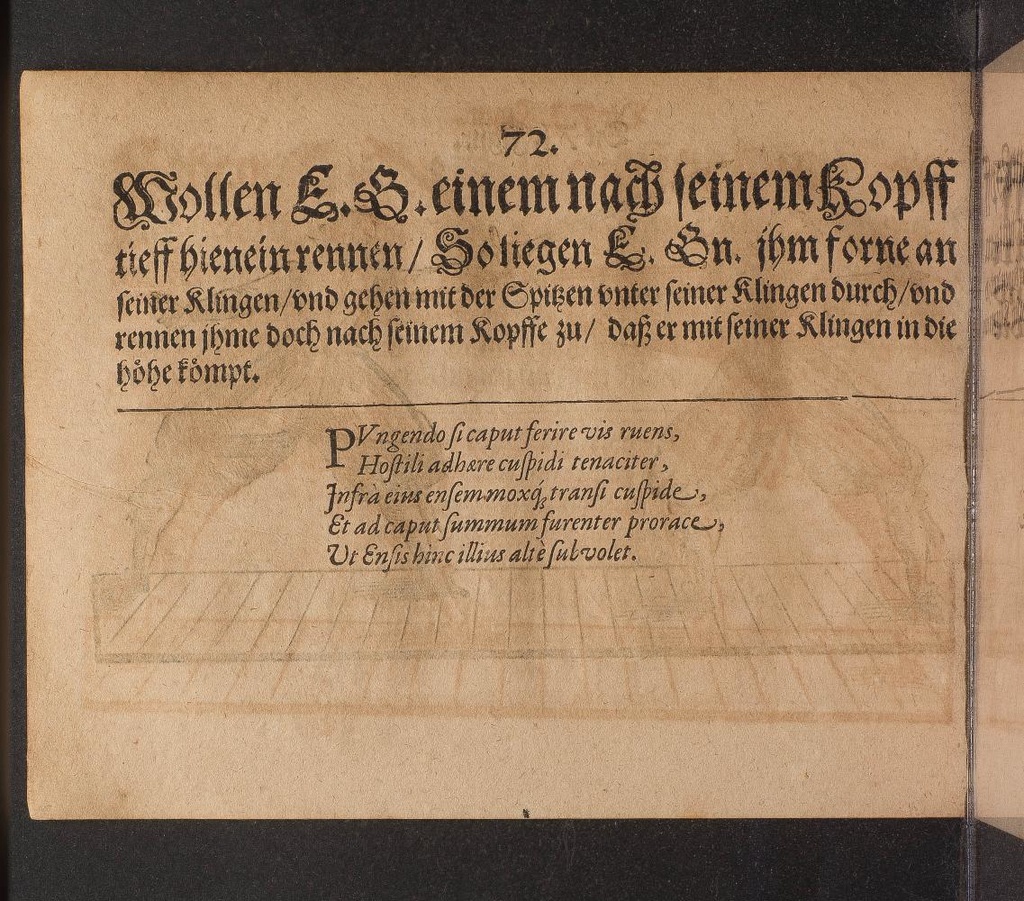 72.
Wollen E. G. einem nach seinem Kopff
tieff hienein rennen / So liegen E. Gn. jhm forne an
seiner Klingen / vnd gehen mit der Spitzen vnter seiner Klingen durch / vnd
rennen jhme doch nach seinem Kopffe zu / daß er mit seiner Klingen in die
hoͤhe koͤmpt.
PVngendo ſi caput ferire vis ruens,
Hoſtili adhære cuſpidi tenaciter,
Infrà eius enſem moxq́; tranſi cuſpide,
Et ad caput ſummum furenter prorace,
Ut Enſis hinc illius altè ſubvolet.